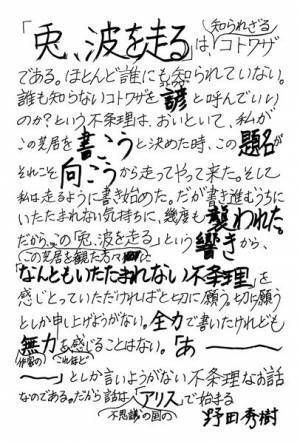 「兎、波を走る」は、知られざるコトワザ
である。ほとんど誰にも知られていない。
誰も知らないコトワザを諺（ことわざ）と呼んでいい
のか？という不条理は、おいといて、私が
この芝居を書こうと決めた時、この題名が
それこそ向こうから走ってやって来た。そして
私は走るように書き始めた。だが書き進むうちに
いたたまれない気持ちに、幾度も襲われた。
だから、この「兎、波を走る」という響きから、
（この芝居を観た方々が）
「なんともいたたまれない不条理」を
感じとっていただければと切に願う。切に願う
としか申し上げようがない。全力で書いたけれども
作家の無力をこれほど感じることはない。「あ——
——」としか言いようがない不条理なお話
なのである。だから話は、不思議の国のアリスで始まる
野田秀樹